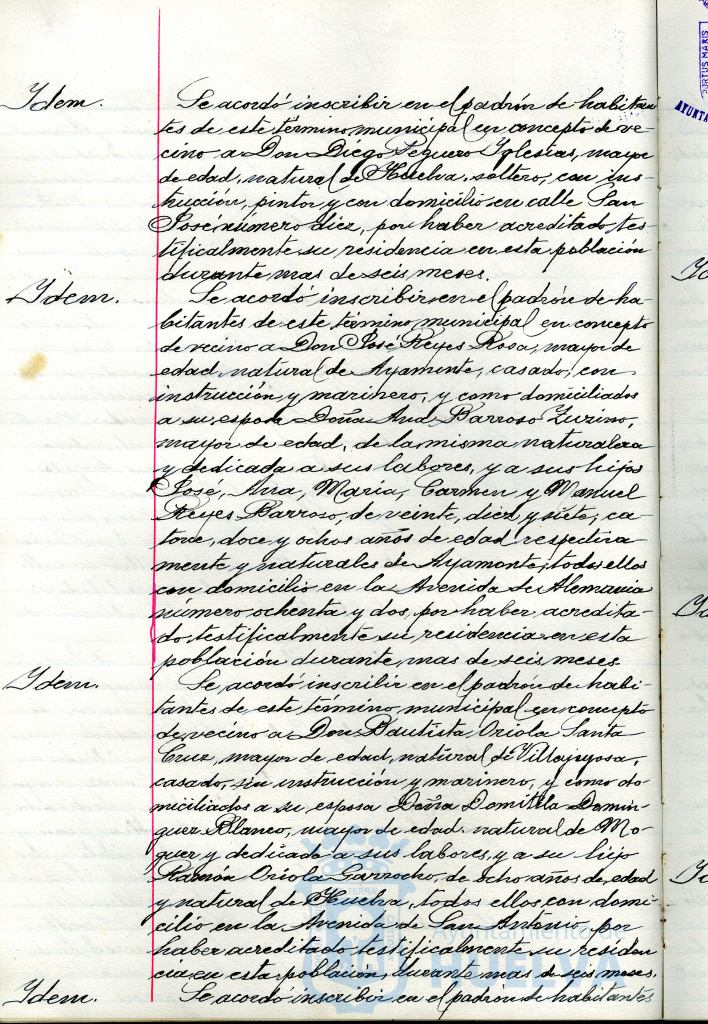 Idem. Se acordó inscribir en el padrón de habitan-
tes de este término municipal en concepto de ve-
cino a Don Diego Seguero Yglesias, mayor
de edad, natural de Huelva, soltero, con ins-
trucción, pintor, y con domicilio en calle San
José número diez, por haber acreditado, tes-
tificalmente su residencia en esta población
durante mas de seis meses.
Idem. Se acordó inscribir en el padrón de ha-
bitantes de este término municipal en concepto
de vecino a Don José Reyes Rosa, mayor de
edad, natural de Ayamonte, casado, con
instrucción, y marinero, y como domiciliados
a su esposa Doña Ana Barroso Zurino,
mayor de edad, de la misma naturaleza
y dedicada a sus labores, y a sus hijos
José, Ana, María, Carmen y Manuel
Reyes Barroso, de veinte, diez y siete, ca-
torce, doce y ochos años de edad respectiva-
mente y naturales de Ayamonte, todos ellos
con domicilio en la Avenida de Alemania
número ochenta y dos, por haber acredita-
do, testificalmente su residencia en esta
población durante mas de seis meses.
Idem. Se acordó inscribir en el padrón de habi-
tantes de este término municipal en concepto
de vecino a Don Bautista Oriola Santa
Cruz, mayor de edad, natural de Villajoyosa,
casado, sin instrucción y marinero, y como do-
miciliados a su esposa Doña Domitila Domin-
guez Blanco, mayor de edad, natural de Mo-
guer y dedicada a sus labores, y a su hijo
Ramón Oriola Garrocho, de ocho años de edad
y natural de Huelva, todos ellos con domi-
cilio en la Avenida de San Antonio, por
haber acreditado testificalmente su residen
cia en esta población, durante mas de seis meses.
Idem. Se acordó inscribir en el padrón de habitantes
Ayuntamiento de
HUELVA
PORTUS MARIS
AYUNTA